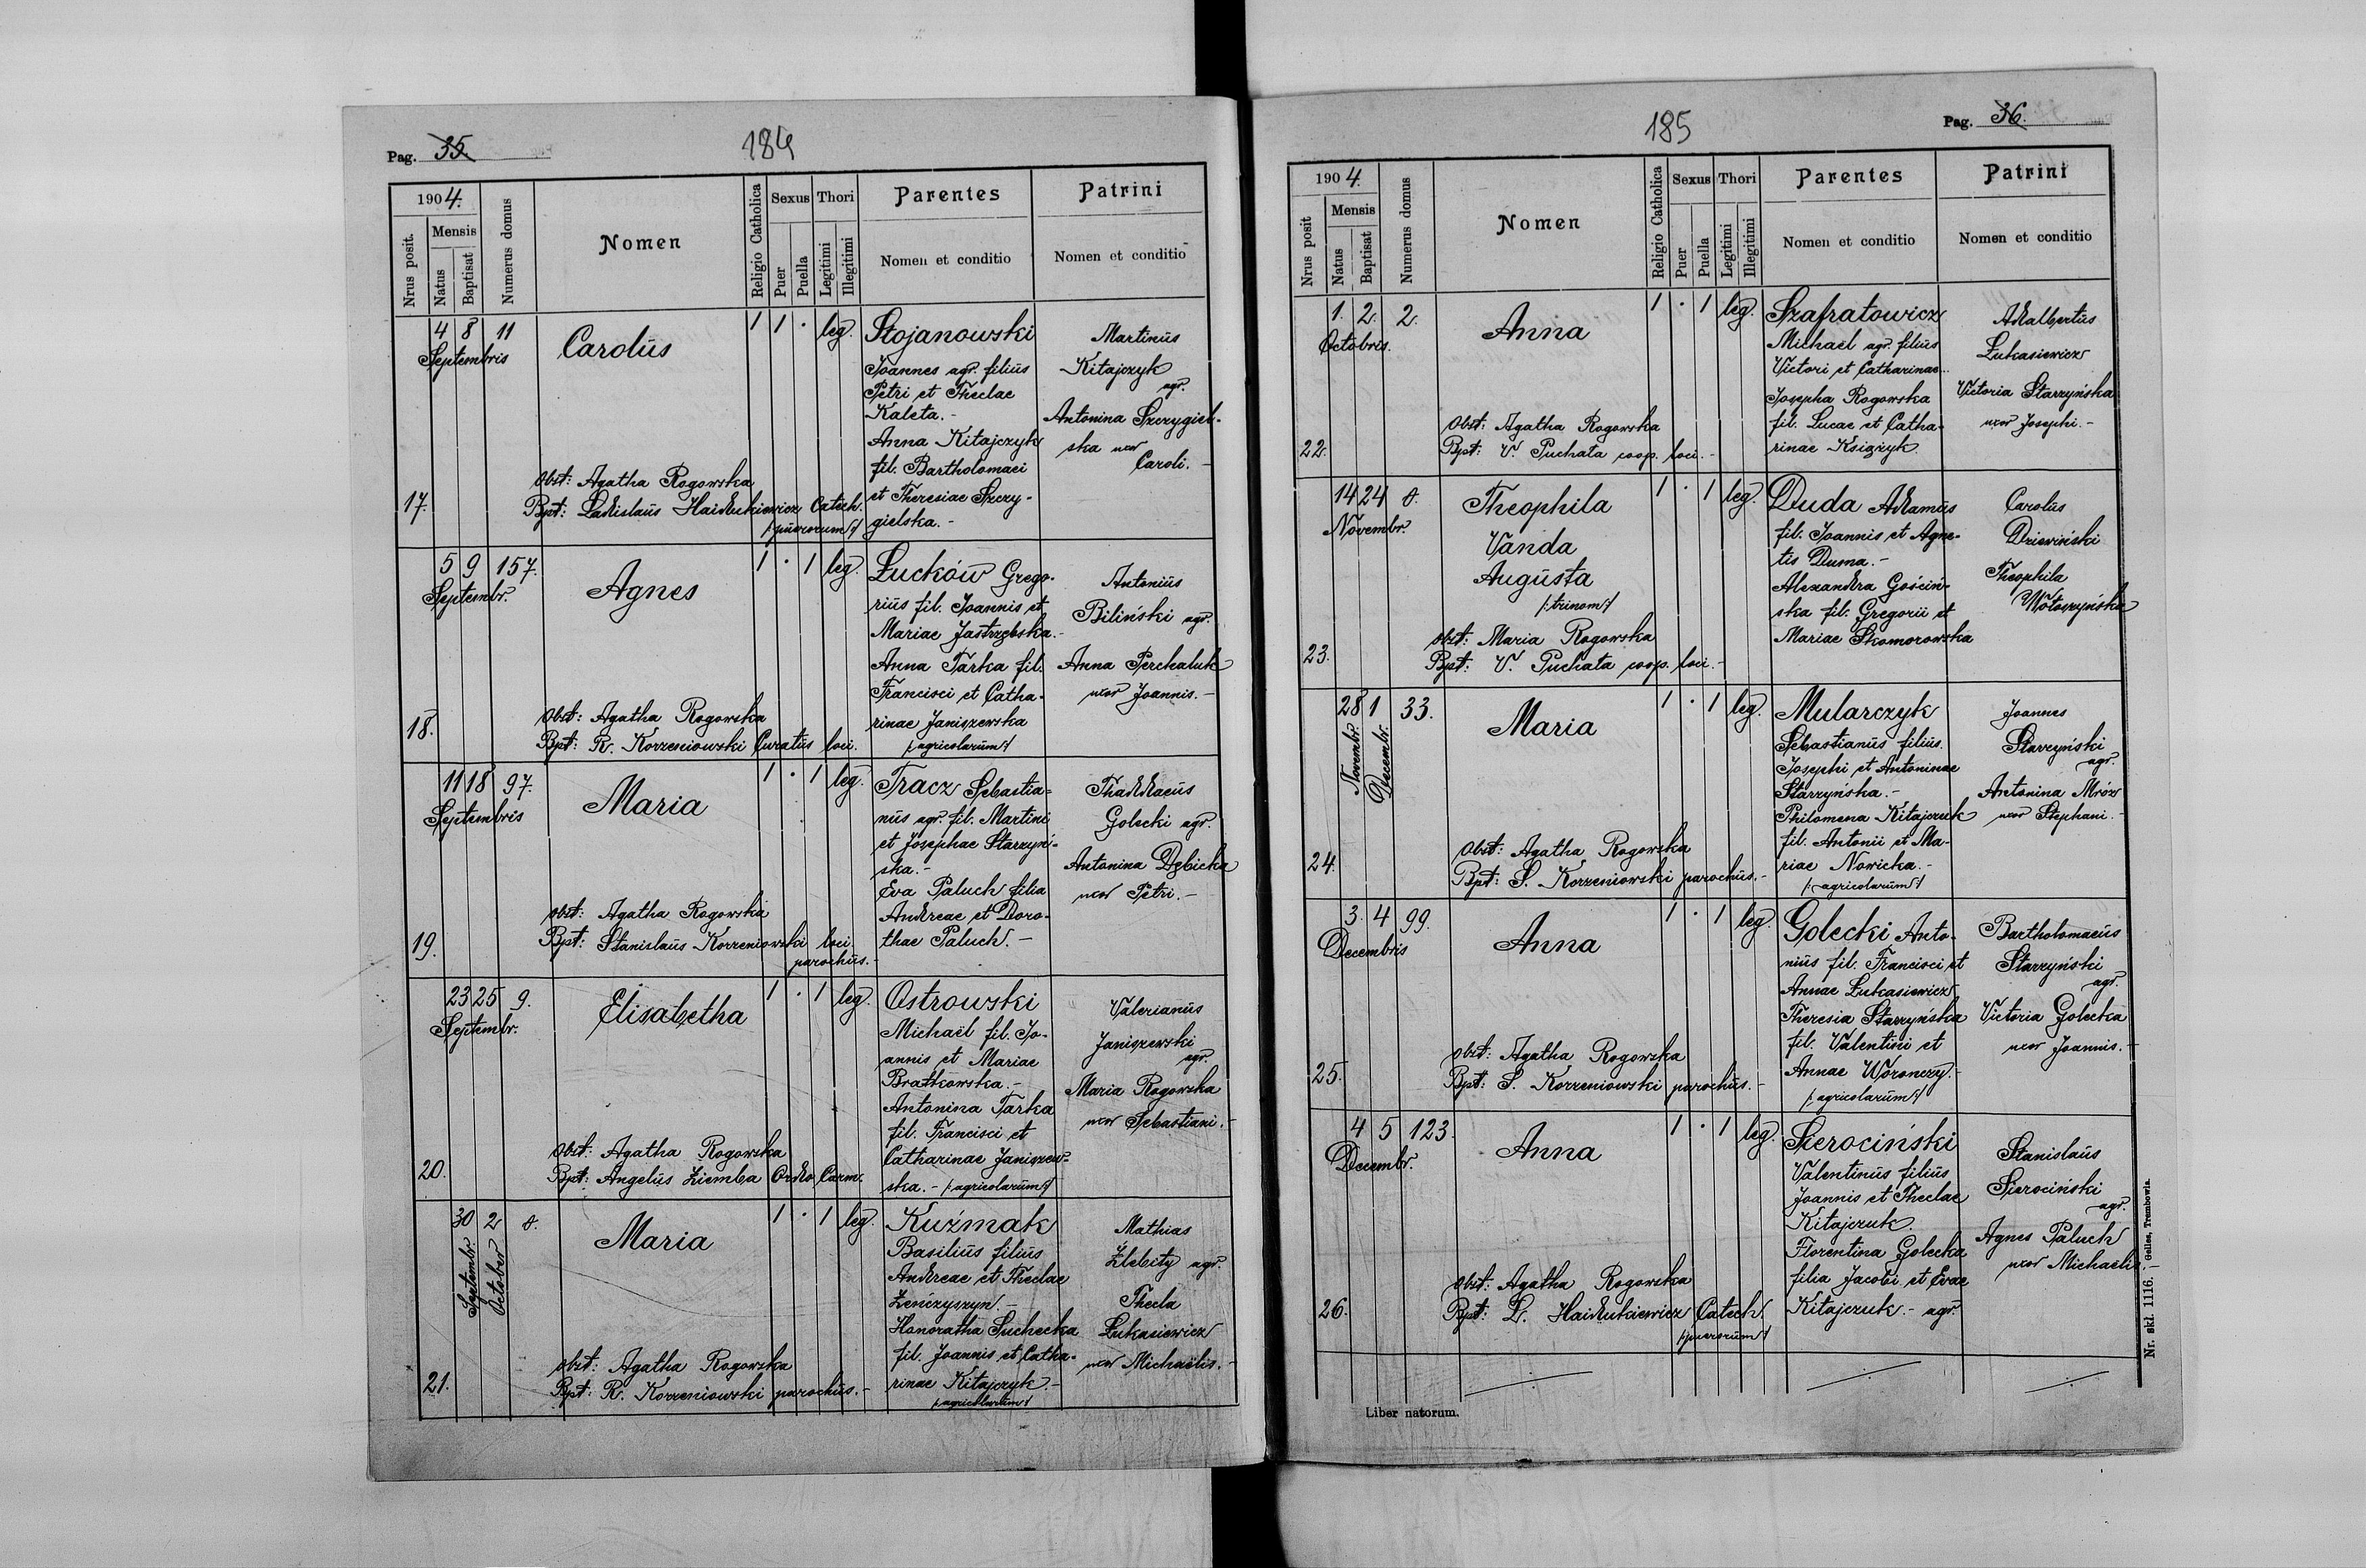 Pag. 35.
184
1904.
Nrus posit.
Mensis
Natus
Baptisat
Numerus domus
Nomen
Religio Catholica
Sexus
Puer
Puella
Thori
Legitimi
Illegitimi
Parentes
Nomen et conditio
Patrini
Nomen et conditio
17.
4 8 11
Septembris
Carolus
Obst: Agatha Rogowska
Bpt: Ladislaus Haidukiewicz Catech.
/:puerorum:/
1 1 · leg.
Stojanowski
Joannes agr. filius
Petri et Theclae
Kaleta.-
Anna Kitajczyk
fil. Bartholomaei
et Theresiae Szczy-
gielska.-
Martinus
Kitajczyk
agr.
Antonina Szczygiel-
ska uxor
Caroli.-
18.
5 9 157.
Septembr.
Agnes
Obst: Agatha Rogowska
Bpt: R. Korzeniowski Curatus loci.
1 · 1 leg.
Łucków Grego-
rius fil. Joannis et
Mariae Jastrzębska.-
Anna Tarka fil.
Francisci et Catha-
rinae Janiszewska
/:agricolarum:/
Antonius
Biliński agr.
Anna Perchaluk
uxor Joannis.-
19.
11 18 97.
Septembris
Maria
Obst: Agatha Rogowska
Bpt: Stanislaus Korzeniowski loci
parochus.-
1 · 1 leg.
Tracz Sebastia-
nus agr. fil. Martini
et Josephae Starzyń-
ska.-
Eva Paluch filia
Andreae et Doro-
thae Paluch.-
Thaddaeus
Golecki agr.
Antonina Dębicka
uxor Petri.-
20.
23 25 9.
Septembr.
Elisabetha
Obst: Agatha Rogowska
Bpt: Angelus Ziemba Ordo Carm.
1 · 1 leg.
Ostrowski
Michaël fil. Jo-
annis et Mariae
Bratkowska.-
Antonina Tarka
fil. Francisci et
Catharinae Janiszew-
ska.- /:agricolarum:/
Valerianus
Janiszewski
agr.
Maria Rogowska
uxor Sebastiani.-
21.
30 2
Septembr.
October
Maria
Obst: Agatha Rogowska
Bpt: R. Korzeniowski parochus.-
1 · 1 leg.
Kuźmak
Basilius filius
Andreae et Theclae
Honoratha Suchecka
fil. Joannis et Catha-
rinae Kitajczyk.-
/:agricolarum:/
Mathias
agr.
Thecla
Łukasiewicz
uxor Michaëlis.-
185
Pag. 36.
1904.
Nrus posit
Mensis
Natus
Baptisat
Numerus domus
Nomen
Religio Catholica
Sexus
Puer
Puella
Thori
Legitimi
Illegitimi
Parentes
Nomen et conditio
Patrini
Nomen et conditio
22.
1. 2. 2.
Octobris.
Anna
Obst: Agatha Rogowska
Bpt: V. Puchata coop. loci.-
1 · 1 leg.
Szafratowicz
Michaël agr. filius
Victori et Catharinae
Josepha Rogowska
fil. Lucae et Catha-
rinae Książyk
Adalbertus
Łukasiewicz
Victoria Starzyńska
uxor Josephi.-
23.
14 24
Novembr.
Theophila
Vanda
Augusta
/:trinom:/
Obst: Maria Rogowska
Bpt: V. Puchata coop. loci.-
1 · 1 leg.
Duda Adamus
fil. Joannis et Agne-
tis Duma.-
Alexandra Gościń-
ska fil. Gregorii et
Mariae Skomorowska
Carolus
Dziewiński
Theophila
Wołoszyńska
24.
28 1 33.
Novembr.
Decembr.
Maria
Obst: Agatha Rogowska
Bpt: S. Korzeniowski parochus.-
1 · 1 leg.
Mularczyk
Sebastianus filius
Josephi et Antoninae
Starzyńska.-
Philomena Kitajczuk
fil. Antonii et Ma-
riae Nowicka.-
/:agricolarum:/
Joannes
Starzyński
agr.
Antonina Mróz
uxor Stephani.-
25.
3. 4 99.
Decembris
Anna
Obst: Agatha Rogowska
Bpt: S. Korzeniowski parochus.-
1 · 1 leg.
Golecki Anto-
nius fil. Francisci et
Annae Łukasiewicz
Theresia Starzyńska
fil. Valentini et
Annae Woronczy.-
/:agricolarum:/
Bartholomaeus
Starzyński
agr.
Victoria Golecka
uxor Joannis.-
26.
4 5 123.
Decembr.
Anna
Obst: Agatha Rogowska
Bpt: L. Haidukiewicz Catech.
/:puerorum:/
1 · 1 leg.
Sierociński
Valentinus filius
Joannis et Theclae
Kitajczuk.
Florentina Golecka
filia Jacobi et Evae
Kitajczuk.- agr.
Stanislaus
Sierociński
agr.
Agnes Paluch
uxor Michaelis.-
Liber natorum.
Nr. skł. 1116. Gelles, Trembowla.